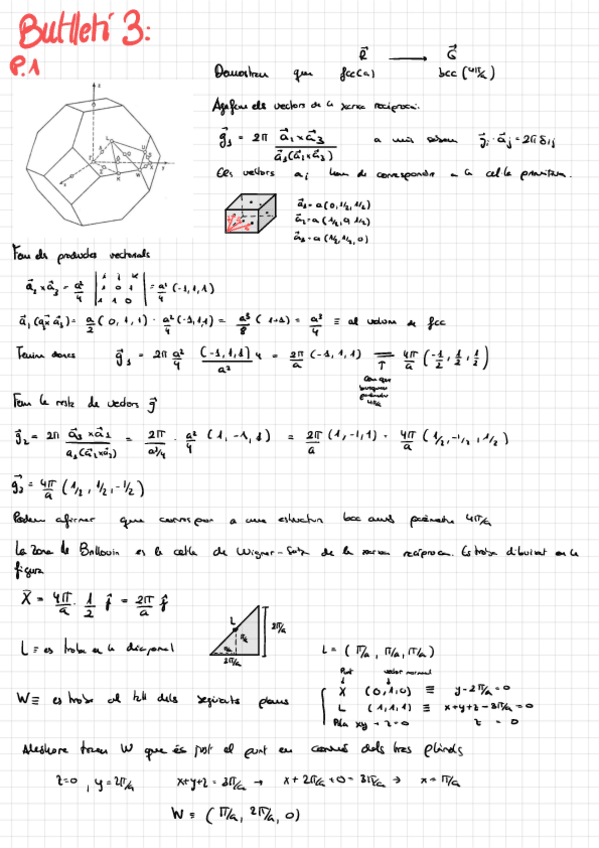 Butlletí 3:
P.1
R⃗ ⟶ G⃗
Demostreu que fcc(a) bcc (4π/a)
Agafem els vectors de la xarxa recíproca.
g⃗₁ = 2π a⃗₂ x a⃗₃ / a⃗₁(a⃗₂ x a⃗₃) a més g⃗ᵢ · a⃗ⱼ = 2π δᵢⱼ
Els vectors aᵢ han de correspondre a la cel·la primitiva.
a⃗₁ = a (0, 1/2, 1/2)
a⃗₂ = a (1/2, 0, 1/2)
a⃗₃ = a (1/2, 1/2, 0)
Fem els productes vectorials
a⃗₂ x a⃗₃ = a²/4 | 1 0 1 | 1 1 0 | = a²/4 (-1, 1, 1)
a⃗₁(a⃗₂ x a⃗₃) = a/2 (0, 1, 1) · a²/4 (-1, 1, 1) = a³/8 (1+1) = a³/4 ≡ al volum de fcc
Tenim doncs g⃗₁ = 2π a²/4 (-1, 1, 1) 4 / a³ = 2π/a (-1, 1, 1) = 4π/a (-1/2, 1/2, 1/2)
↑
Fem la resta de vectors g⃗
g⃗₂ = 2π a⃗₃ x a⃗₁ / a⃗₁(a⃗₂ x a⃗₃) = 2π / a³/4 · a²/4 (1, -1, 1) = 2π/a (1, -1, 1) · 4π/a (1/2, -1/2, 1/2)
g⃗₃ = 4π/a (1/2, 1/2, -1/2)
Podem afirmar que correspon a una estructura bcc amb paràmetre 4π/a
La zona de Brillouin es la cel·la de Wigner-Seitz de la xarxa recíproca. Es troba dibuixat en la
figura
X⃗ = 4π/a · 1/2 ĵ = 2π/a ĵ
L 2π/a
2π/a
L ≡ es troba en la diagonal L = (π/a, π/a, π/a)
Punt vector normal
W ≡ es troba al tall dels següents plans
X (0,1,0) ≡ y - 2π/a = 0
L (1,1,1) ≡ x+y+z - 3π/a = 0
Pla xy → z=0 z = 0
Aleshores W que és just el punt en comú dels tres
z=0, y = 2π/a x+y+z = 3π/a → x + 2π/a + 0 = 3π/a → x = π/a
W ≡ (π/a, 2π/a, 0)